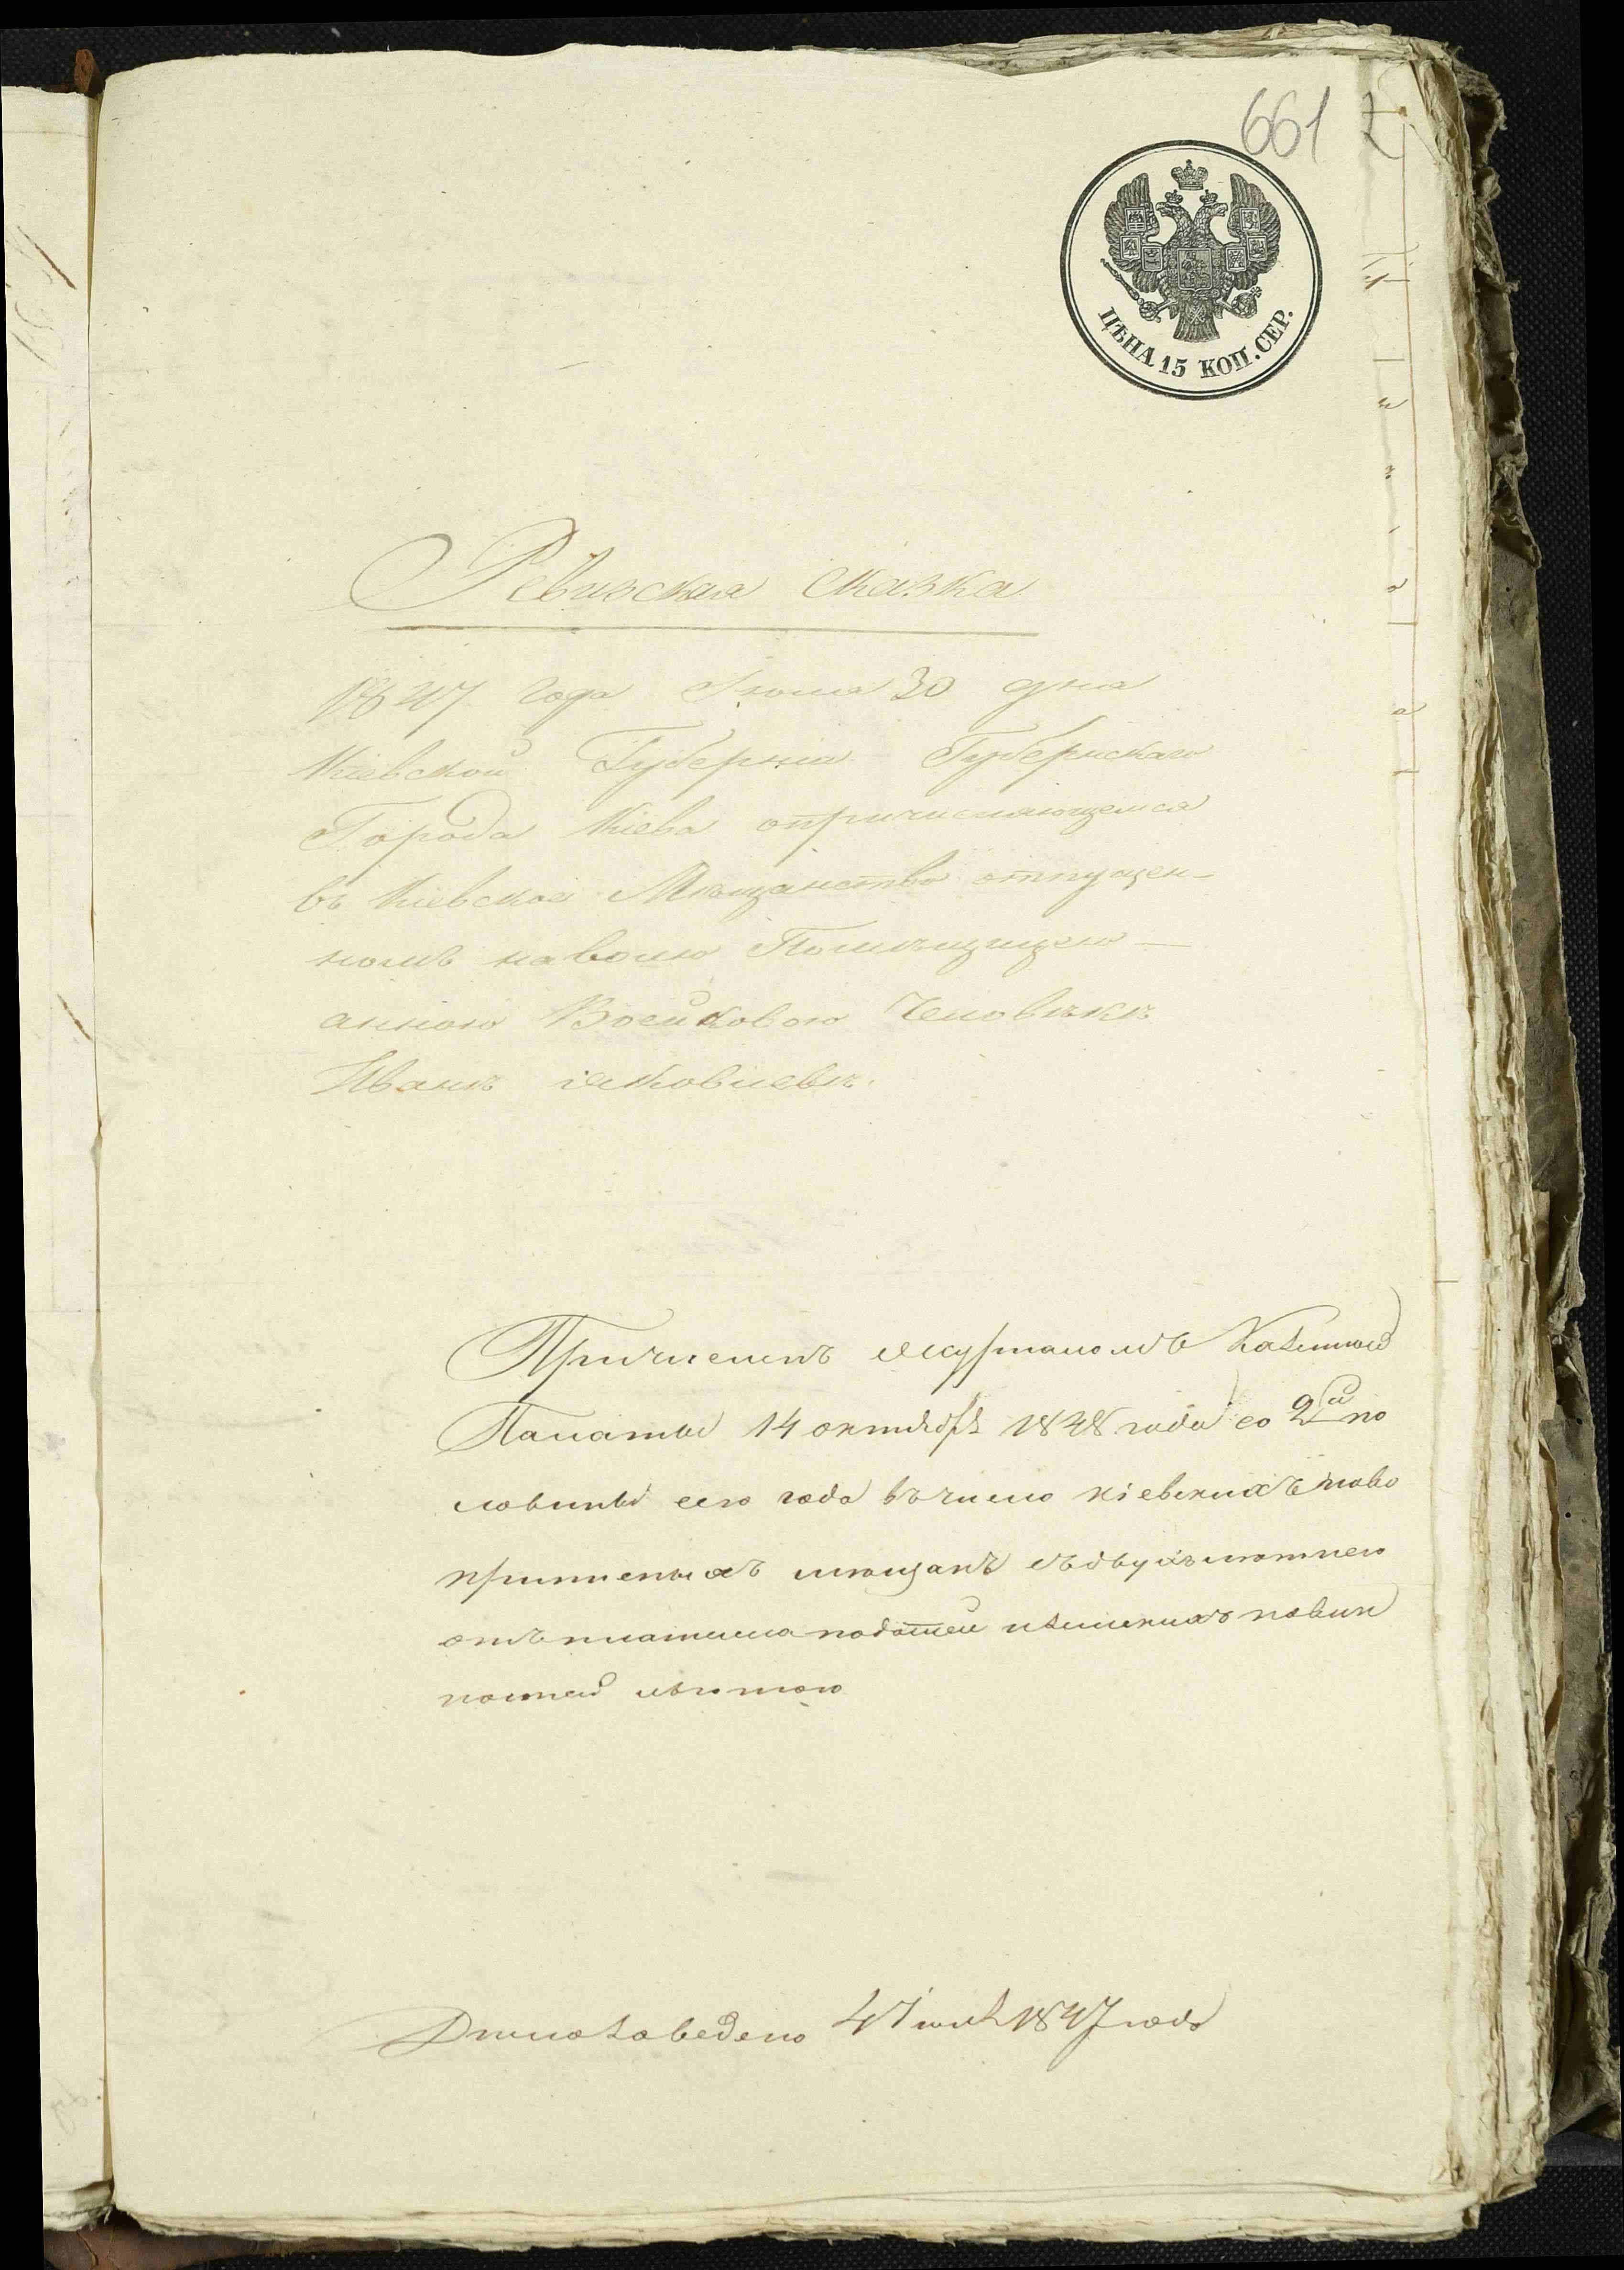 661
ЦѢНА 15 КОП. СЕР.
Ревизская сказка
1847 года Июня 30 дня
Кіевской Губерніи Губернскаго
Города Кіева опричисляющемся
въ Кіевское Мѣщанство отпущен-
номъ наволю Помѣщицею
анною Воейковою Человѣкѣ
Иванѣ яковлевѣ.
Причисленъ журналомъ Казенной
Палаты 14 октября 1848 года со 2й по
ловины сего года въ число кіевскихъ
мѣщанъ съ двухълѣтнею
отъ платежа податей повин
ностей льготою
Дѣло заведено 4 1847 года